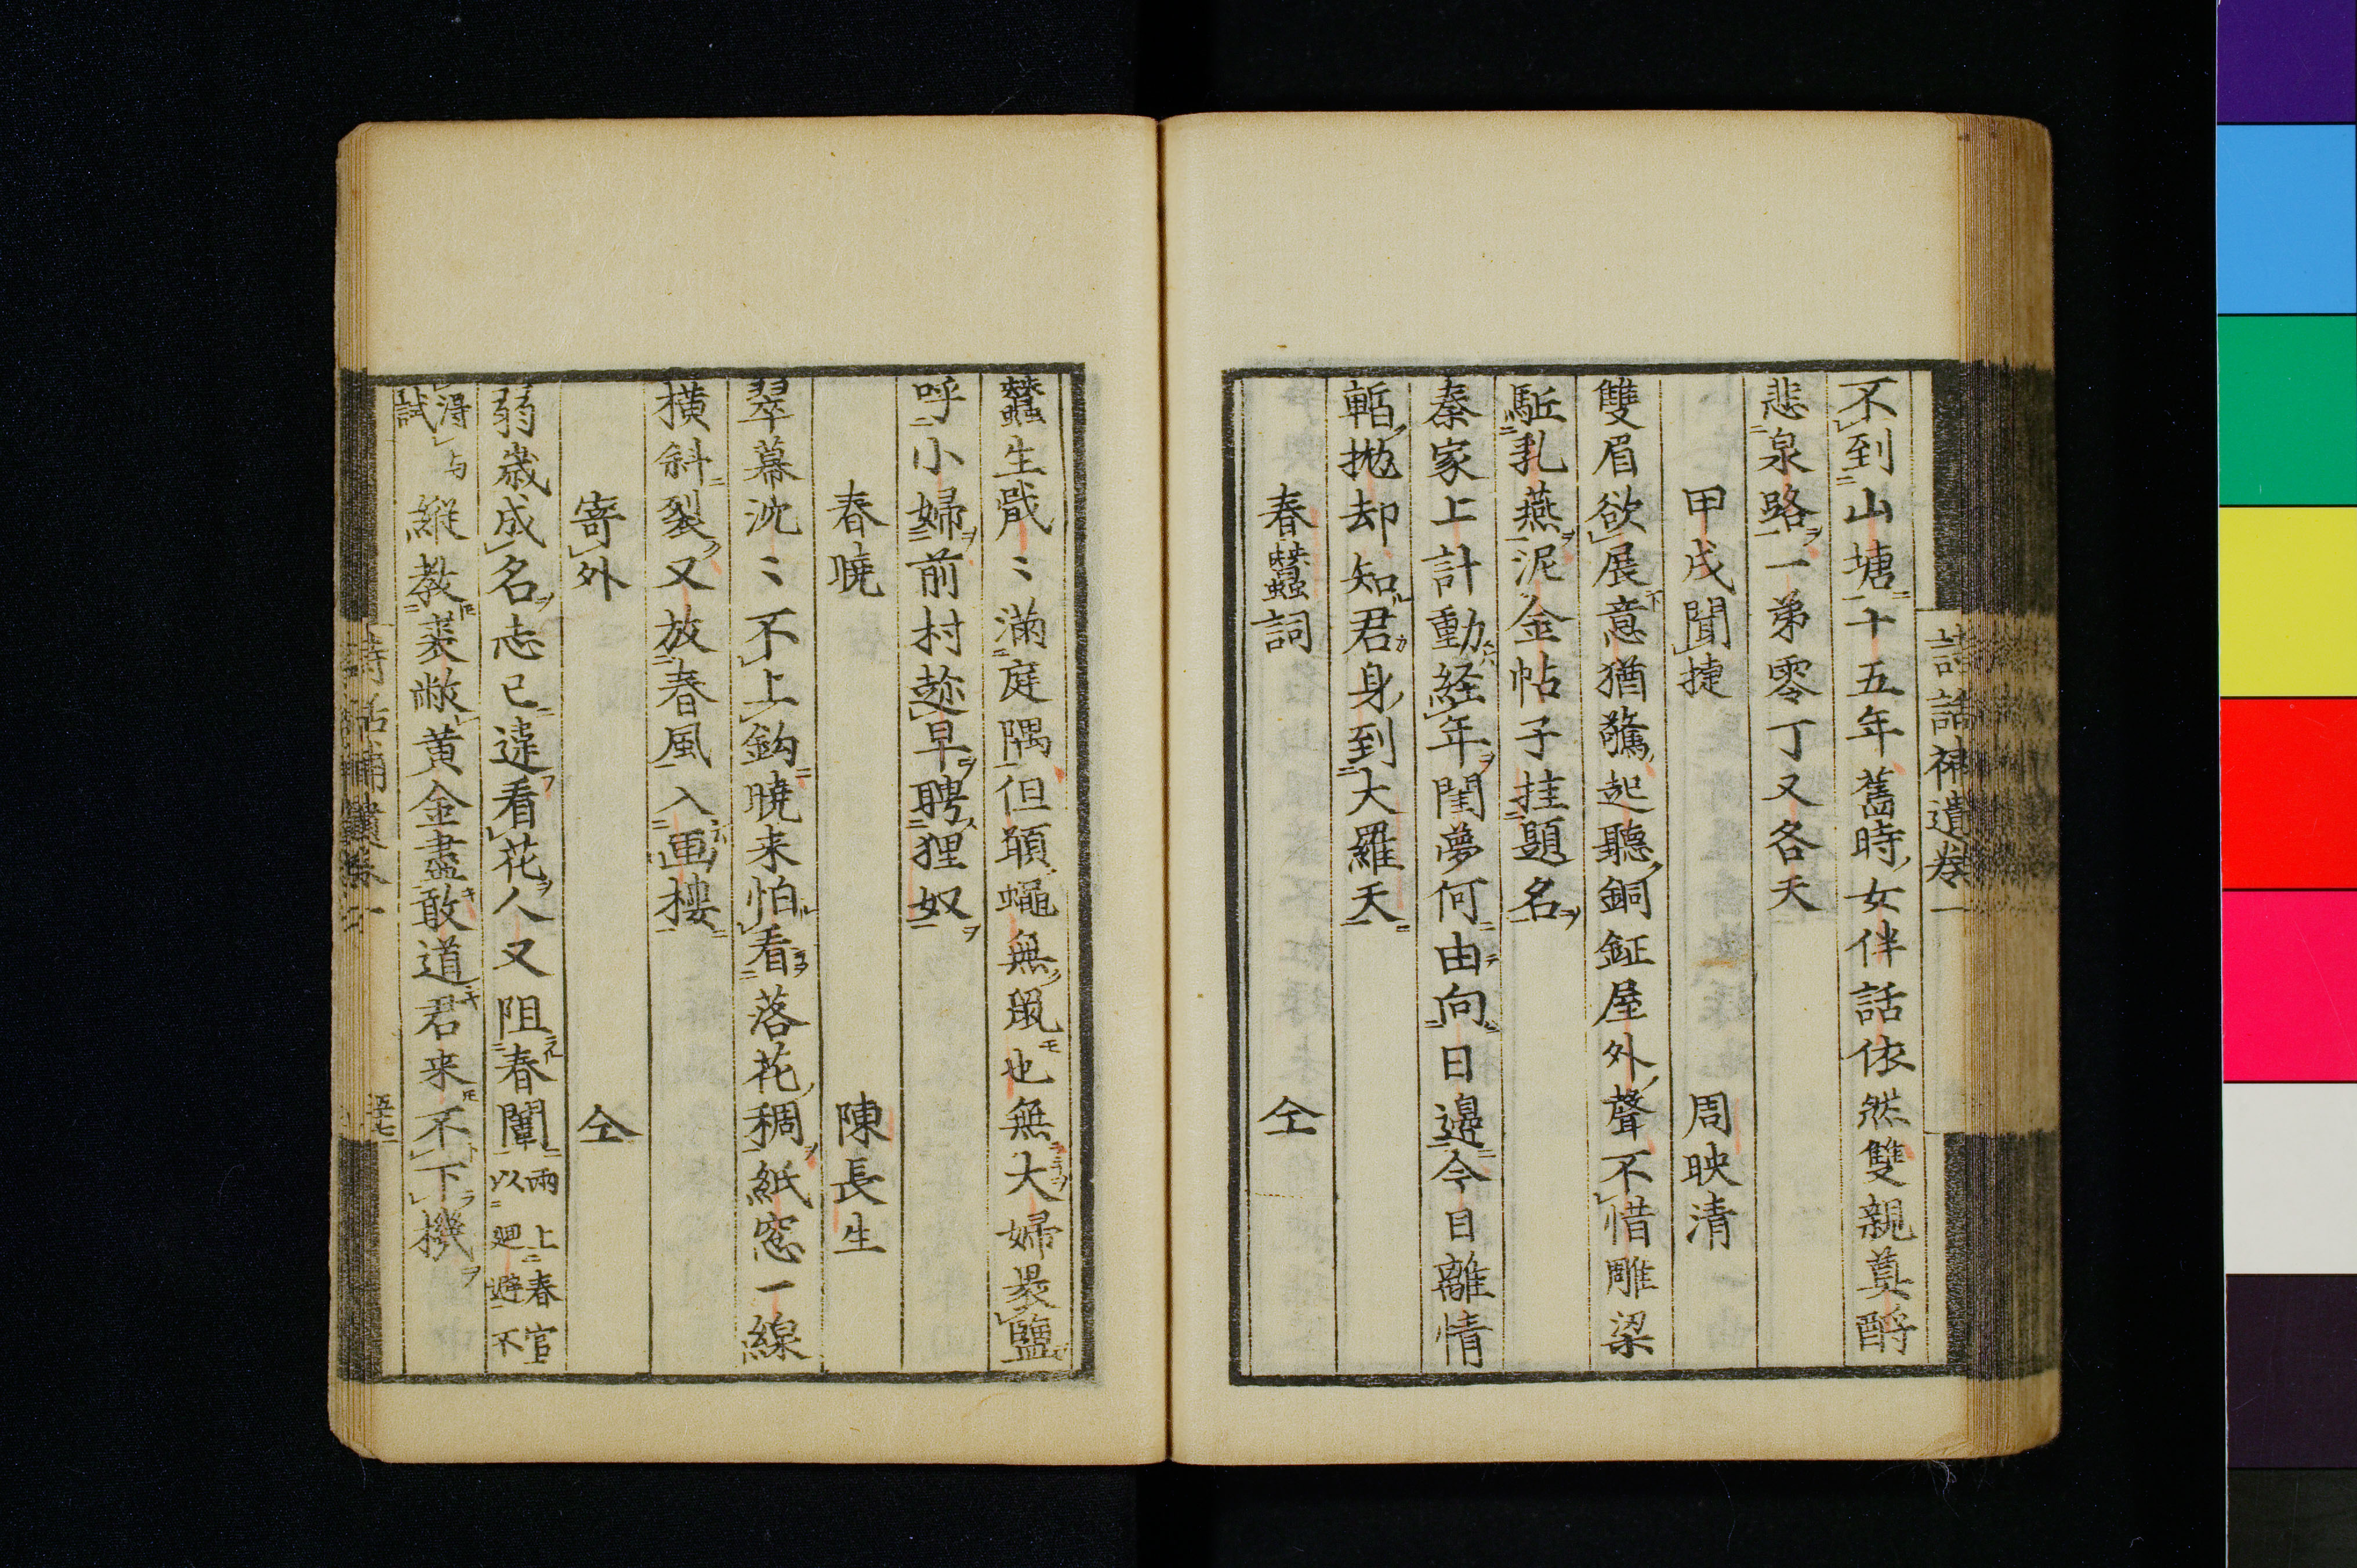 詩話補遺卷一
不到山塘十五年舊時女伴話依然雙親奠酹
悲泉路一弟零丁又各天
甲戌聞捷　周映清
雙眉欲展意猶驚起聽銅鉦屋外聲不惜雕梁
駈乳燕泥金帖子挂題名
秦家上計動経年閨夢何由向日邉今日離情
暫拋却知君身到大羅天
春蠶詞　仝
蠶生戢〻滿庭隅但願蠅無鼠也無大婦褁鹽
呼小婦前村趂早聘狸奴
春曉　陳長生
翠幕沈〻不上鈎曉来怕看落花稠紙窓一線
橫斜裂又放春風入画樓
寄外　仝
弱歲成名志已違看花人又阻春闈兩上春官
以廻避不
淂与
試
縦教裘敝黄金盡敢道君来不下機
五十七